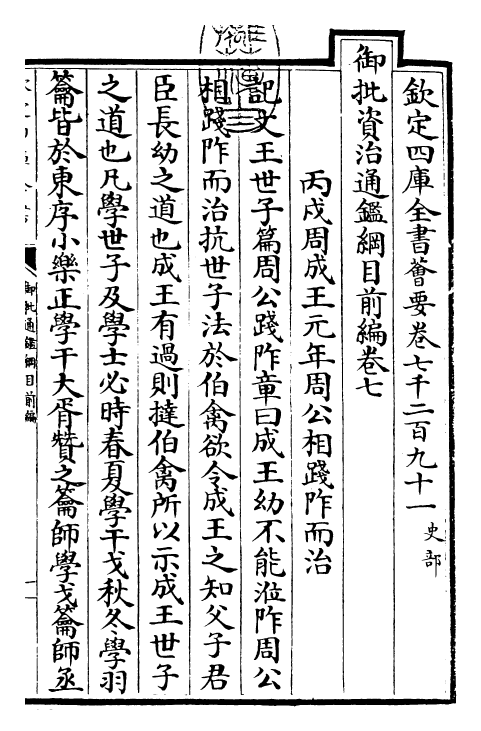 欽定四庫全書薈要卷七千二百九十一 史部
御批資治通鑑綱目前編卷七
丙戍周成王元年周公相踐阼而治
記文王世子篇周公踐阼章曰成王幼不能涖阼周公
相踐阼而治抗世子法於伯禽欲令成王之知父子君
臣長幼之道也成王有過則撻伯禽所以示成王世子
之道也凡學世子及學士必時春夏學干戈秋冬學羽
籥皆於東序小樂正學干大胥贊之籥師學戈籥師丞
御批通鑑綱目前編
一